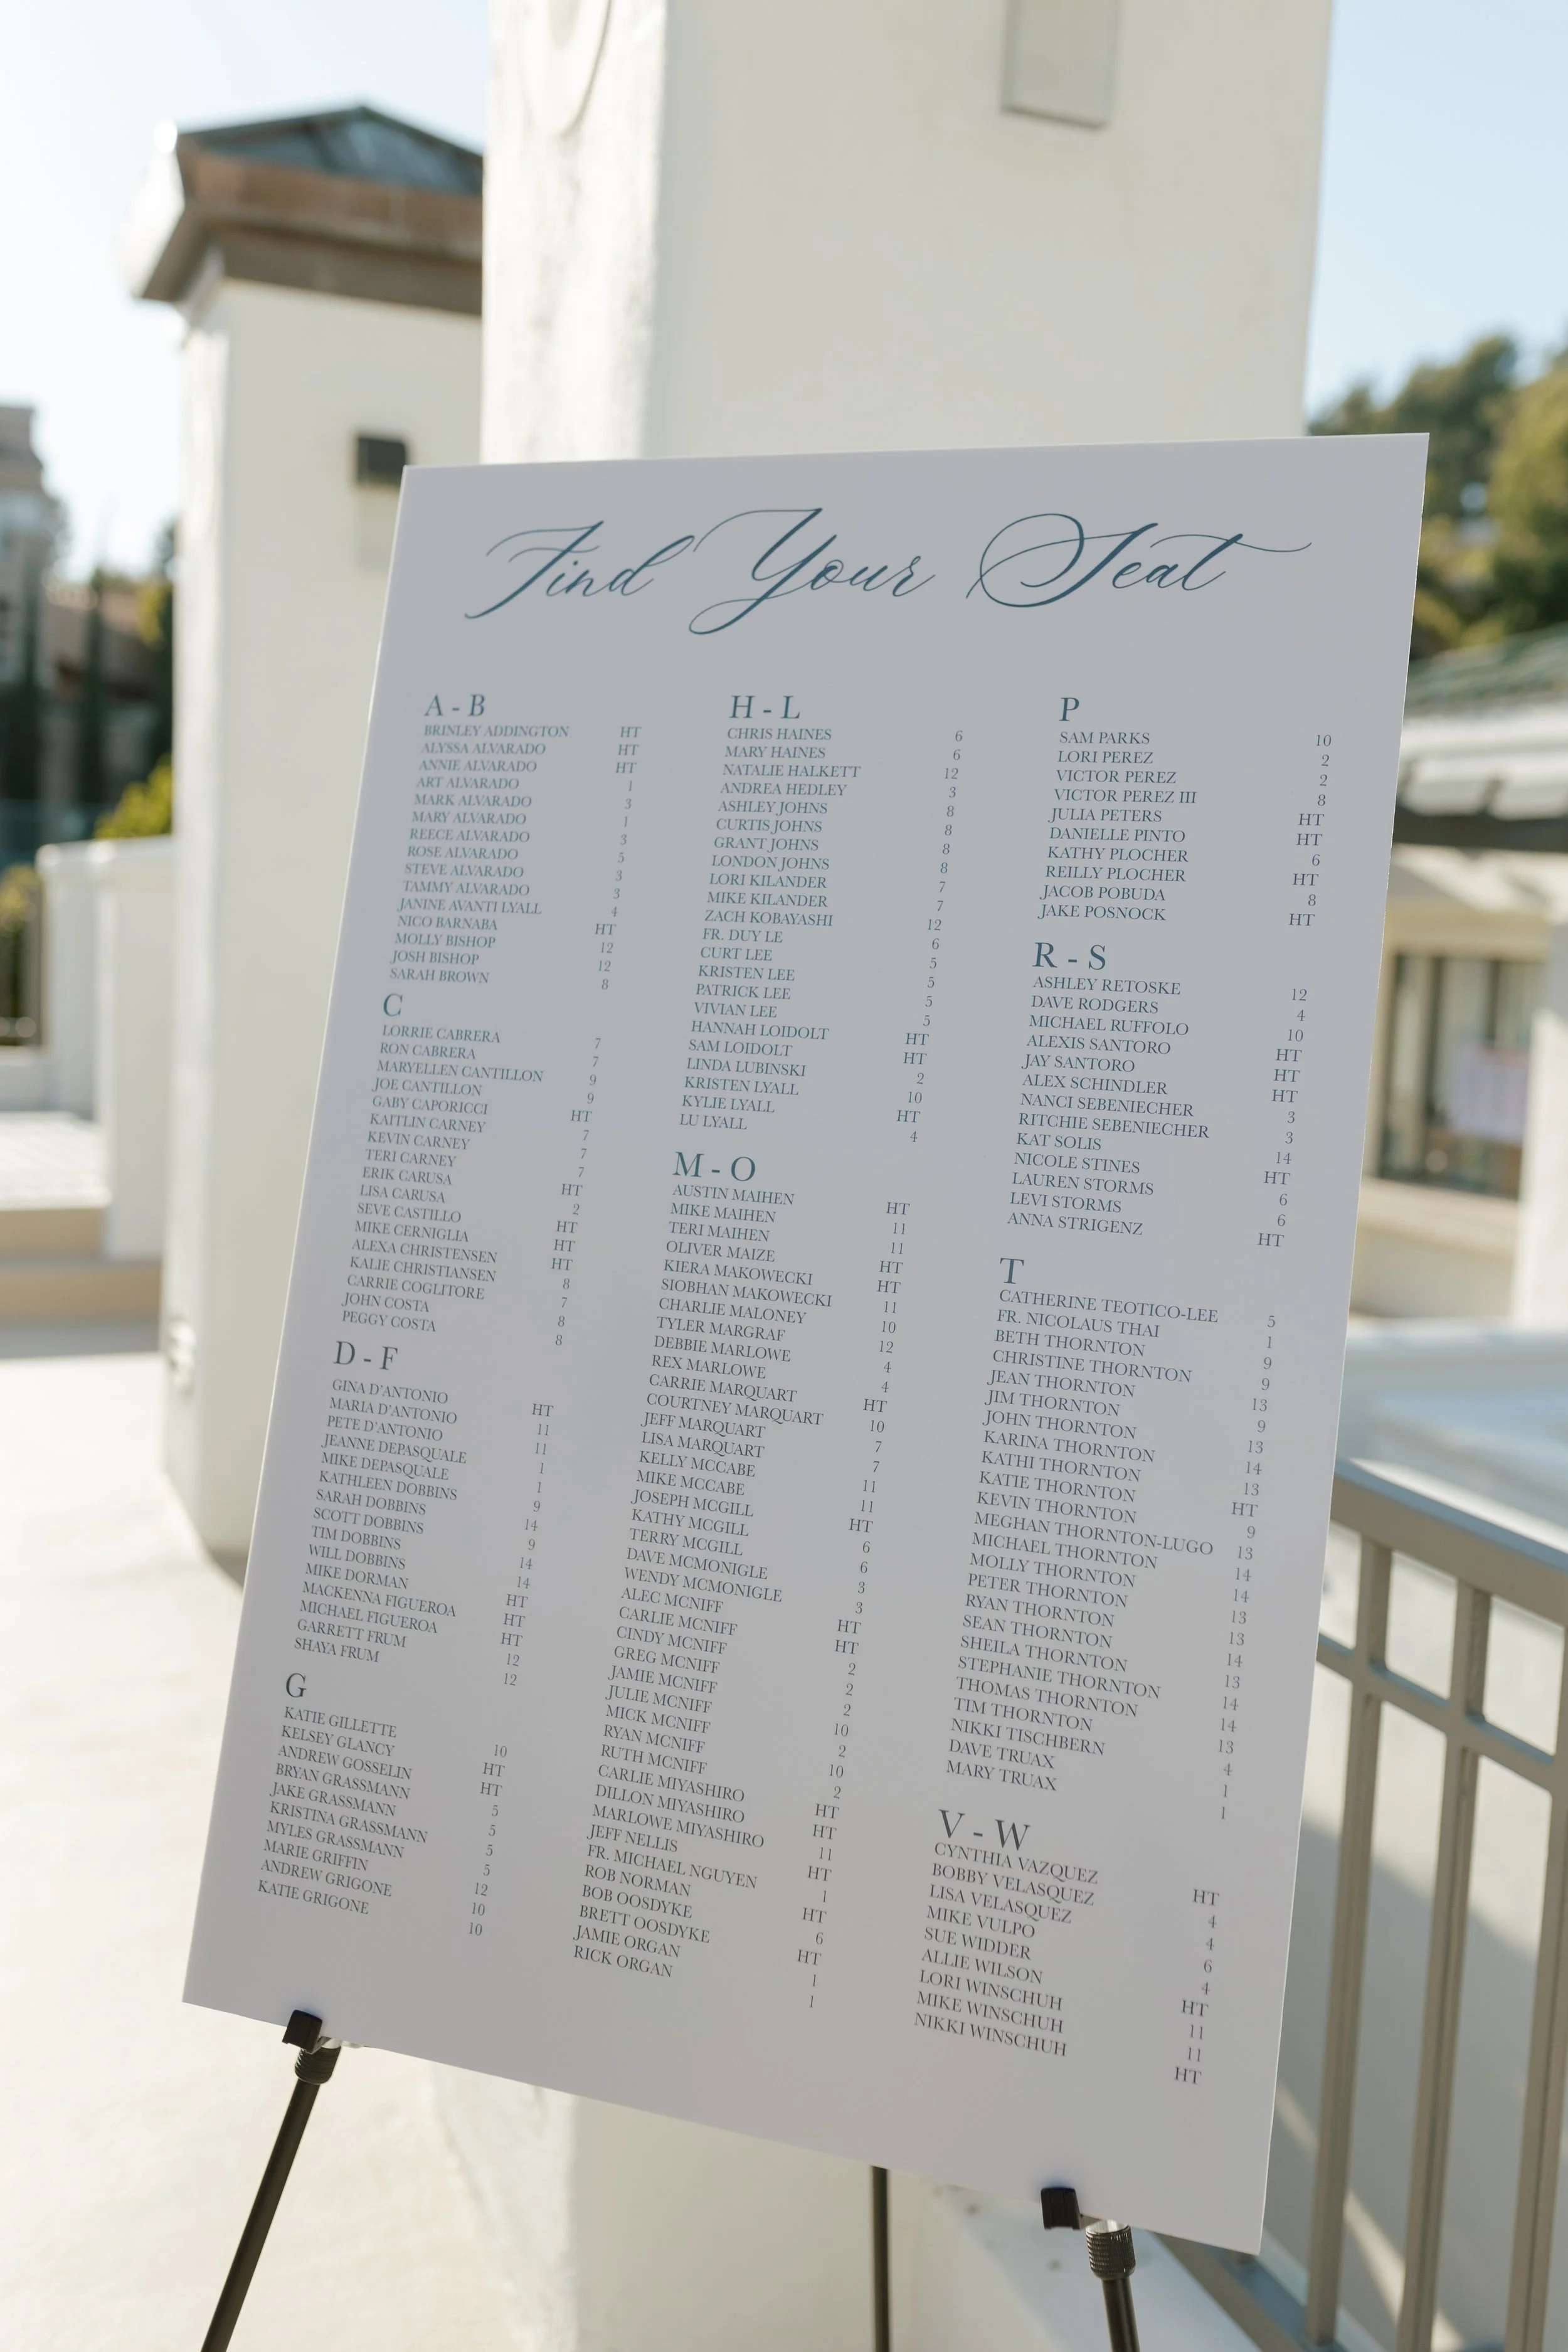 Find Your Seat
A - B
BRINLEY ADDINGTON HT
ALYSSA ALVARADO HT
ANNIE ALVARADO HT
ART ALVARADO 1
MARK ALVARADO 3
MARY ALVARADO 1
REECE ALVARADO 3
ROSE ALVARADO 5
STEVE ALVARADO 3
TAMMY ALVARADO 3
JANINE AVANTI LYALL 4
NICO BARNABA HT
MOLLY BISHOP 12
JOSH BISHOP 12
SARAH BROWN 8
C
LORRIE CABRERA 7
RON CABRERA 7
MARYELLEN CANTILLON 9
JOE CANTILLON 9
GABY CAPORICCI HT
KAITLIN CARNEY 7
KEVIN CARNEY 7
TERI CARNEY 7
ERIK CARUSA HT
LISA CARUSA 2
SEVE CASTILLO HT
MIKE CERNIGLIA HT
ALEXA CHRISTENSEN HT
KALIE CHRISTIANSEN 8
CARRIE COGLITORE 7
JOHN COSTA 8
PEGGY COSTA 8
D - F
GINA D'ANTONIO HT
MARIA D'ANTONIO 11
PETE D'ANTONIO 11
JEANNE DEPASQUALE 1
MIKE DEPASQUALE 1
KATHLEEN DOBBINS 9
SARAH DOBBINS 14
SCOTT DOBBINS 9
TIM DOBBINS 14
WILL DOBBINS 14
MIKE DORMAN HT
MACKENNA FIGUEROA HT
MICHAEL FIGUEROA HT
GARRETT FRUM 12
SHAYA FRUM 12
G
KATIE GILLETTE 10
KELSEY GLANCY HT
ANDREW GOSSELIN HT
BRYAN GRASSMANN 5
JAKE GRASSMANN 5
KRISTINA GRASSMANN 5
MYLES GRASSMANN 5
MARIE GRIFFIN 12
ANDREW GRIGONE 10
KATIE GRIGONE 10
H - L
CHRIS HAINES 6
MARY HAINES 6
NATALIE HALKETT 12
ANDREA HEDLEY 3
ASHLEY JOHNS 8
CURTIS JOHNS 8
GRANT JOHNS 8
LONDON JOHNS 8
LORI KILANDER 7
MIKE KILANDER 7
ZACH KOBAYASHI 12
FR. DUY LE 6
CURT LEE 5
KRISTEN LEE 5
PATRICK LEE 5
VIVIAN LEE 5
HANNAH LOIDOLT HT
SAM LOIDOLT HT
LINDA LUBINSKI 2
KRISTEN LYALL 10
KYLIE LYALL HT
LU LYALL 4
M - O
AUSTIN MAIHEN HT
MIKE MAIHEN 11
TERI MAIHEN 11
OLIVER MAIZE HT
KIERA MAKOWECKI HT
SIOBHAN MAKOWECKI 11
CHARLIE MALONEY 10
TYLER MARGRAF 12
DEBBIE MARLOWE 4
REX MARLOWE 4
CARRIE MARQUART HT
COURTNEY MARQUART 10
JEFF MARQUART 7
LISA MARQUART 7
KELLY MCCABE 11
MIKE MCCABE 11
JOSEPH MCGILL HT
KATHY MCGILL 6
TERRY MCGILL 6
DAVE MCMONIGLE 3
WENDY MCMONIGLE 3
ALEC MCNIFF HT
CARLIE MCNIFF HT
CINDY MCNIFF 2
GREG MCNIFF 2
JAMIE MCNIFF 2
JULIE MCNIFF 10
MICK MCNIFF 2
RYAN MCNIFF 10
RUTH MCNIFF 2
CARLIE MIYASHIRO HT
DILLON MIYASHIRO HT
MARLOWE MIYASHIRO 11
JEFF NELLIS HT
FR. MICHAEL NGUYEN 1
ROB NORMAN HT
BOB OOSDYKE 6
BRETT OOSDYKE HT
JAMIE ORGAN 1
RICK ORGAN 1
P
SAM PARKS 10
LORI PEREZ 2
VICTOR PEREZ 2
VICTOR PEREZ III 8
JULIA PETERS HT
DANIELLE PINTO HT
KATHY PLOCHER 6
REILLY PLOCHER HT
JACOB POBUDA 8
JAKE POSNOCK HT
R - S
ASHLEY RETOSKE 12
DAVE RODGERS 4
MICHAEL RUFFOLO 10
ALEXIS SANTORO HT
JAY SANTORO HT
ALEX SCHINDLER HT
NANCI SEBENIECHER 3
RITCHIE SEBENIECHER 3
KAT SOLIS 14
NICOLE STINES HT
LAUREN STORMS 6
LEVI STORMS 6
ANNA STRIGENZ HT
T
CATHERINE TEOTICO-LEE 5
FR. NICOLAUS THAI 1
BETH THORNTON 9
CHRISTINE THORNTON 9
JEAN THORNTON 13
JIM THORNTON 9
JOHN THORNTON 13
KARINA THORNTON 14
KATHI THORNTON 13
KATIE THORNTON HT
KEVIN THORNTON 9
MEGHAN THORNTON-LUGO 13
MICHAEL THORNTON 14
MOLLY THORNTON 14
PETER THORNTON 13
RYAN THORNTON 13
SEAN THORNTON 14
SHEILA THORNTON 13
STEPHANIE THORNTON 14
THOMAS THORNTON 14
TIM THORNTON 13
NIKKI TISCHBERN 4
DAVE TRUAX 1
MARY TRUAX 1
V - W
CYNTHIA VAZQUEZ HT
BOBBY VELASQUEZ 4
LISA VELASQUEZ 4
MIKE VULPO 6
SUE WIDDER 4
ALLIE WILSON HT
LORI WINSCHUH 11
MIKE WINSCHUH 11
NIKKI WINSCHUH HT